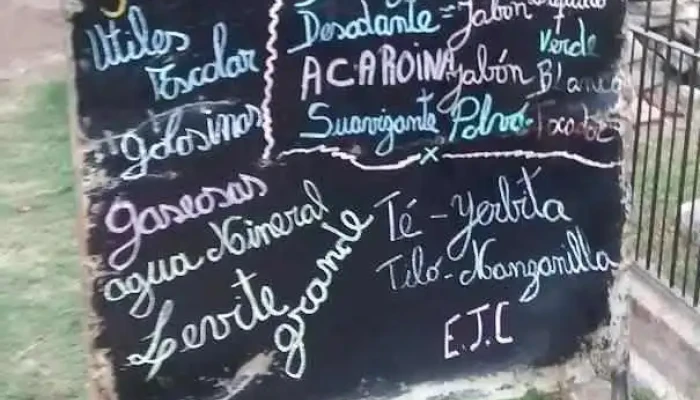 Utiles
Escolar
golosinas
Desodante = Jabón
Verde
ACAROINA Jabón Blanco
Suavizante Polvo - Tocador
gaseosas
agua Mineral
Levite grande
Té - Yerbita
Teló - Manzanilla
E.J.C